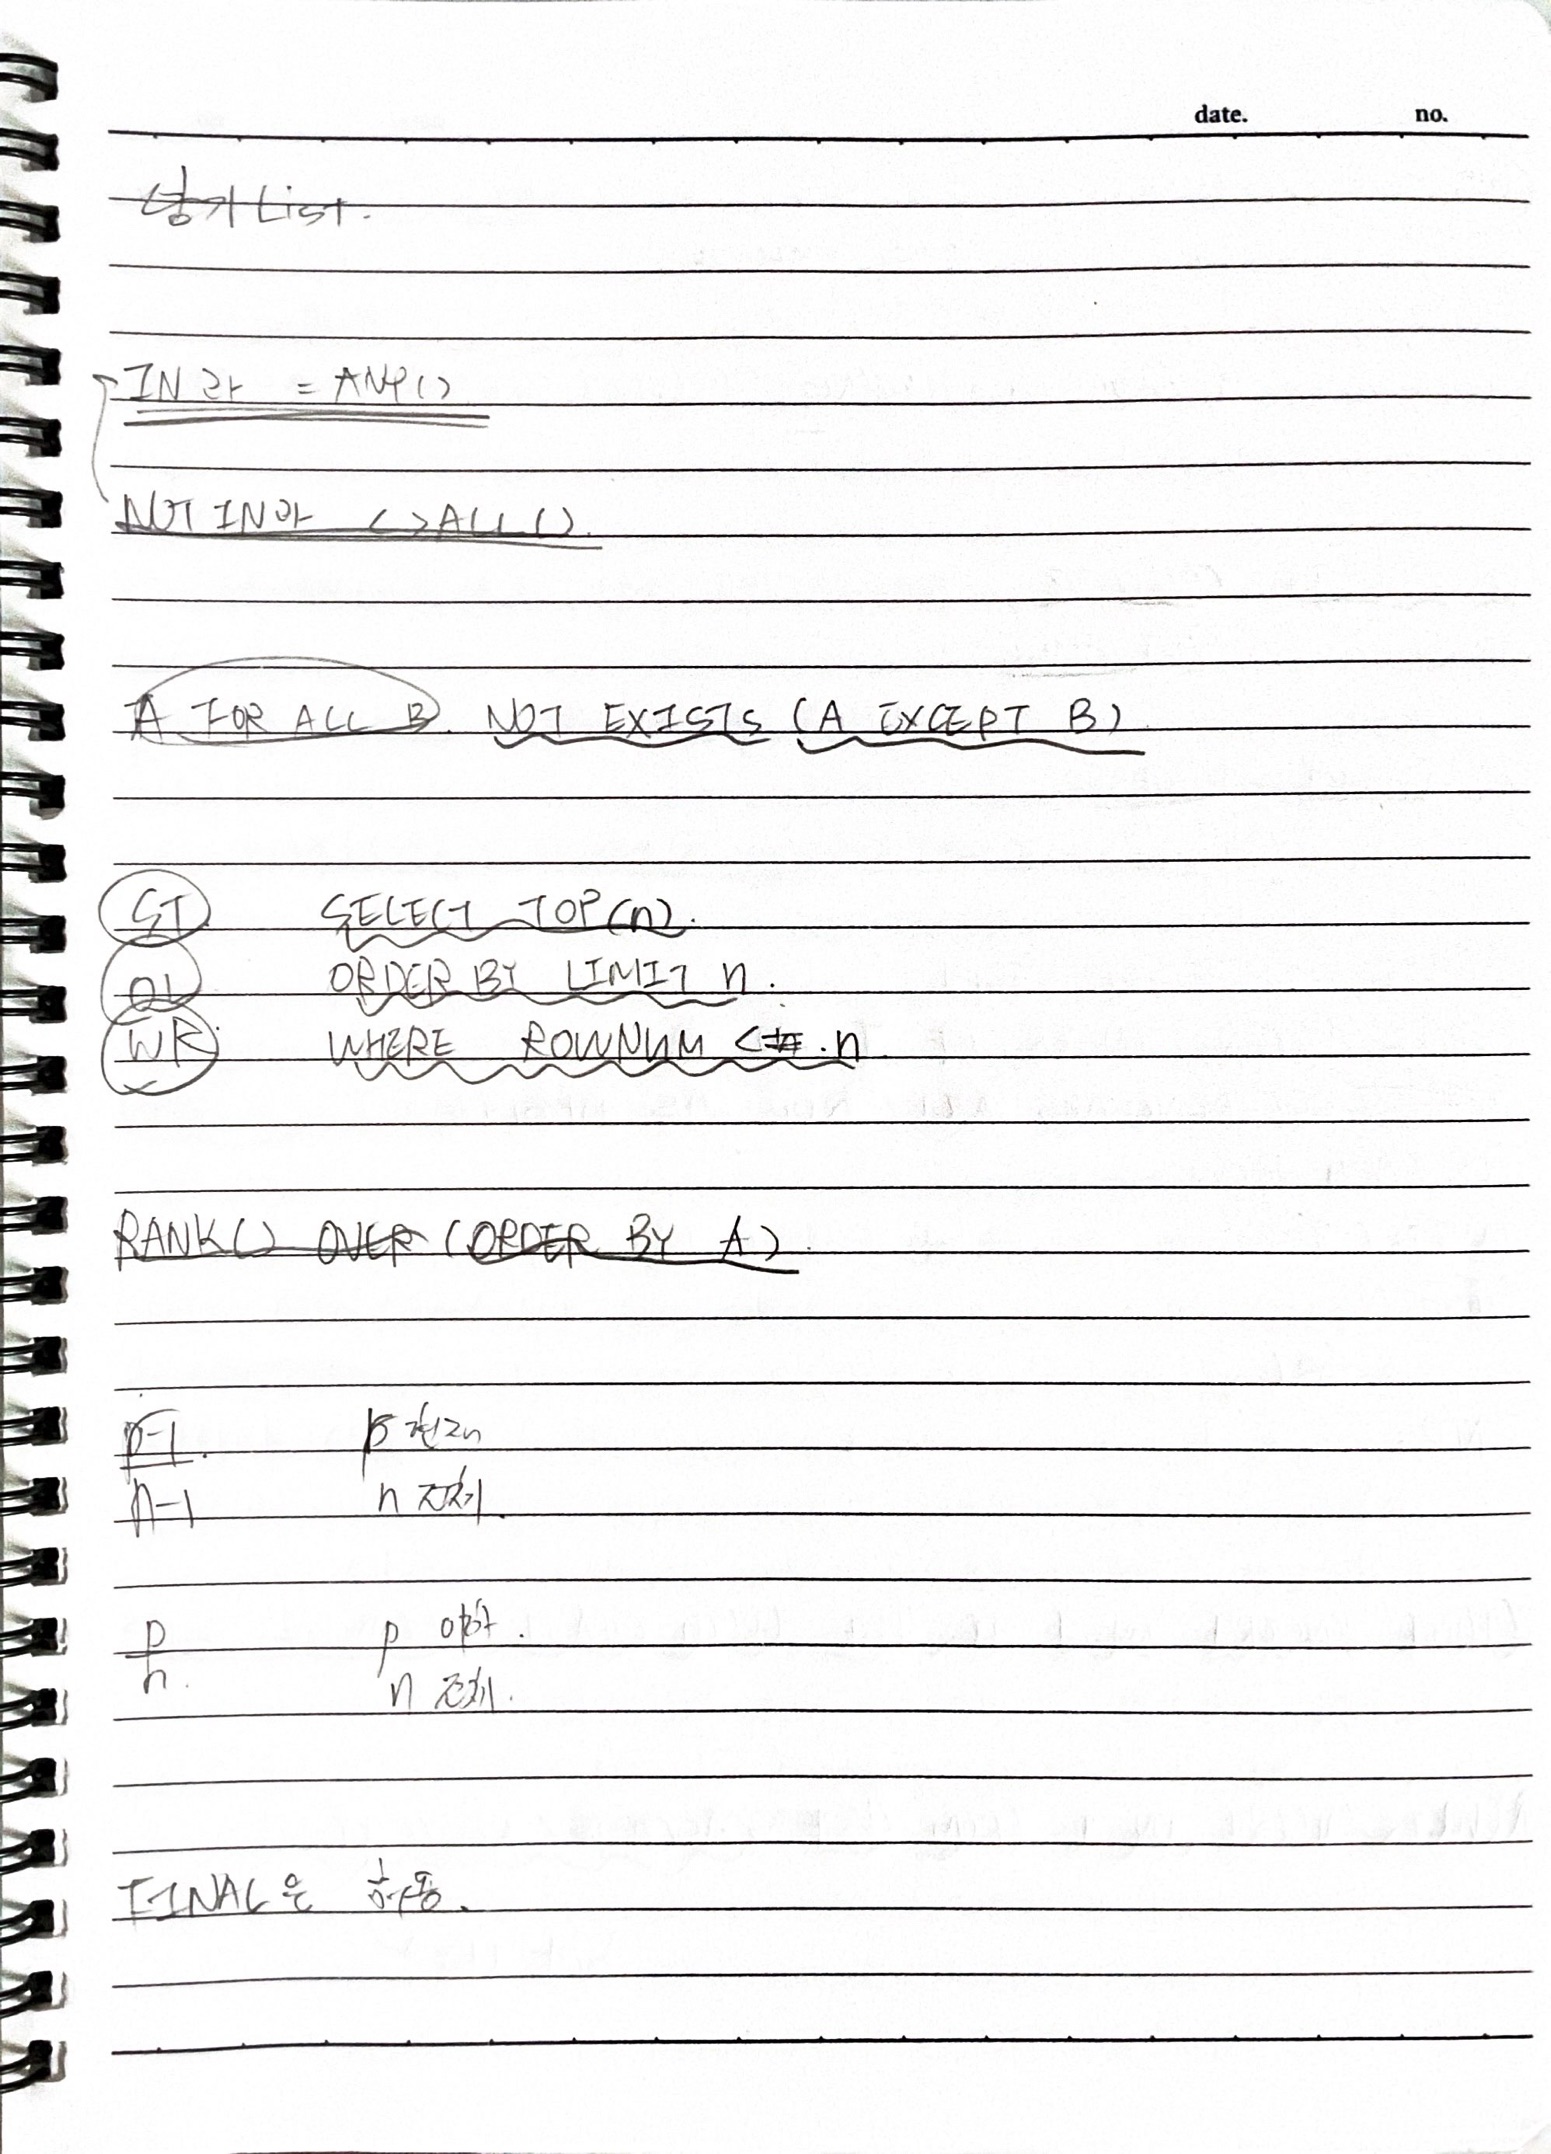 date. no.
암기 List.
IN 과 = ANY()
NOT IN과 <>ALL().
A FOR ALL B. NOT EXISTS (A EXCEPT B).
ST. SELECT TOP(n).
OL ORDER BY LIMIT n.
WR. WHERE ROWNUM < n
RANK() OVER (ORDER BY A).
p-1. p
n-1 n 전체.
p p 이하.
n. n 전체.
FINAL은